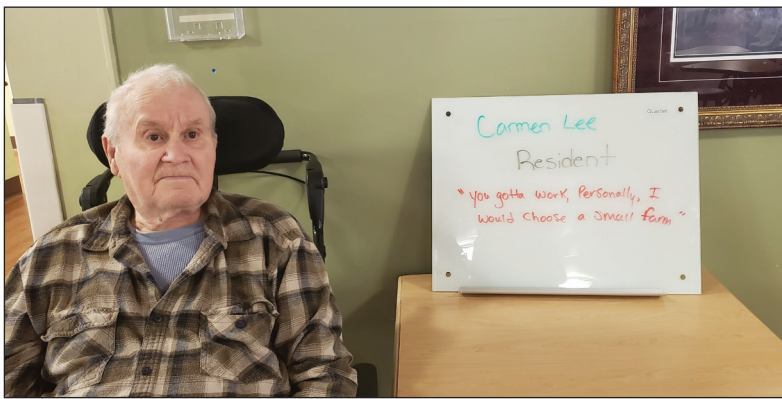 Quartet
Carmen Lee
Resident
"you gotta work, Personally, I
would choose a small farm"